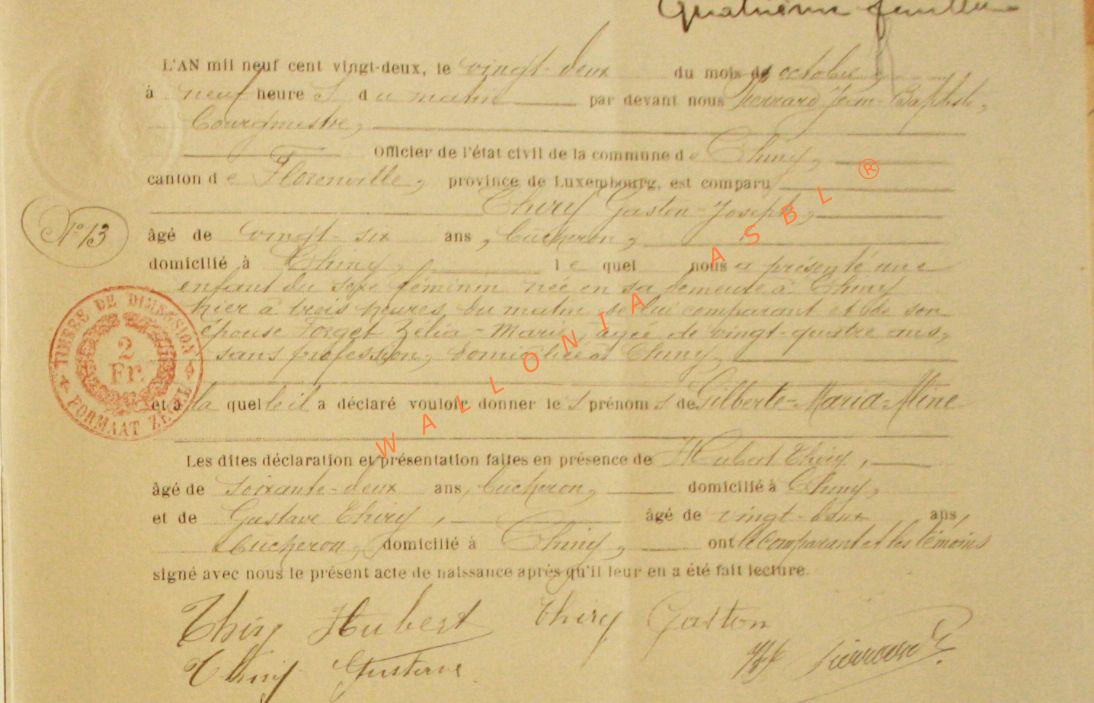 Quatrième feuillet
L'AN mil neuf cent vingt-deux, le vingt-deux du mois de octobre,
à neuf heure s du matin par devant nous Pierrard Jean-Baptiste,
Bourgmestre,
Officier de l'état civil de la commune de Chiny,
canton de Florenville, province de Luxembourg, est comparu
Thiry Gaston-Joseph,
N° 13
âgé de vingt-six ans, bûcheron,
domicilié à Chiny, lequel nous a présenté une
enfant du sexe féminin née en sa demeure à Chiny
hier à trois heures du matin de lui comparant et de son
épouse Forget Zélia-Marie, âgée de vingt-quatre ans,
sans profession, domiciliée à Chiny,
TIMBRE DE DIMENSION
2
Fr.
FORMAAT ZEGEL
et à laquelle il a déclaré vouloir donner les prénoms de Gilberte-Maria-Aline
Les dites déclaration et présentation faites en présence de Hubert Thiry,
âgé de soixante-deux ans, bûcheron, domicilié à Chiny,
et de Gustave Thiry, âgé de vingt-deux ans,
bûcheron, domicilié à Chiny, ont le comparant et les témoins
signé avec nous le présent acte de naissance après qu'il leur en a été fait lecture.
Thiry Hubert Thiry Gaston
Thiry Gustave
WALLONIA ASBL ®